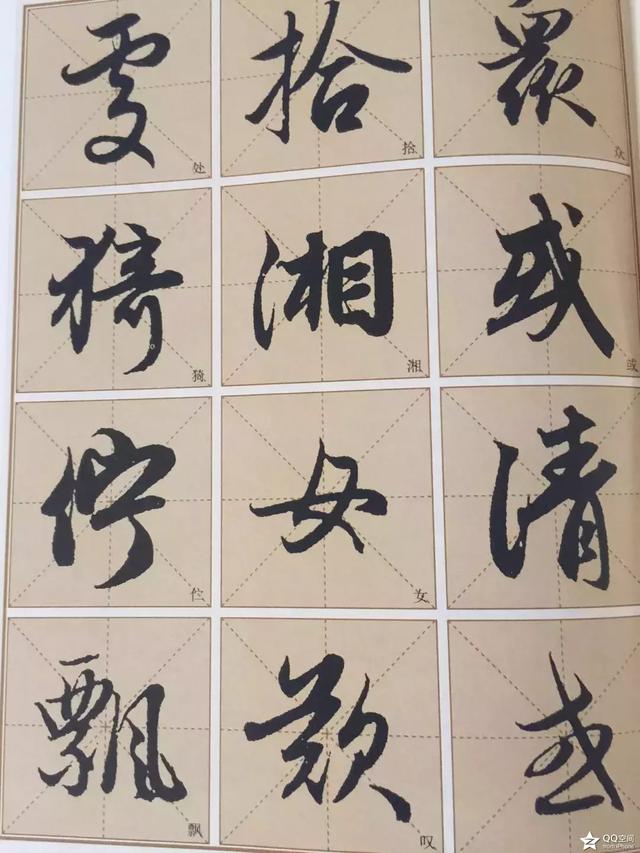 眾或清或
拾湘女歎
處猗佇飄
众
或
拾
湘
女
叹
处
猗
伫
飘
QQ空间
from iPhone